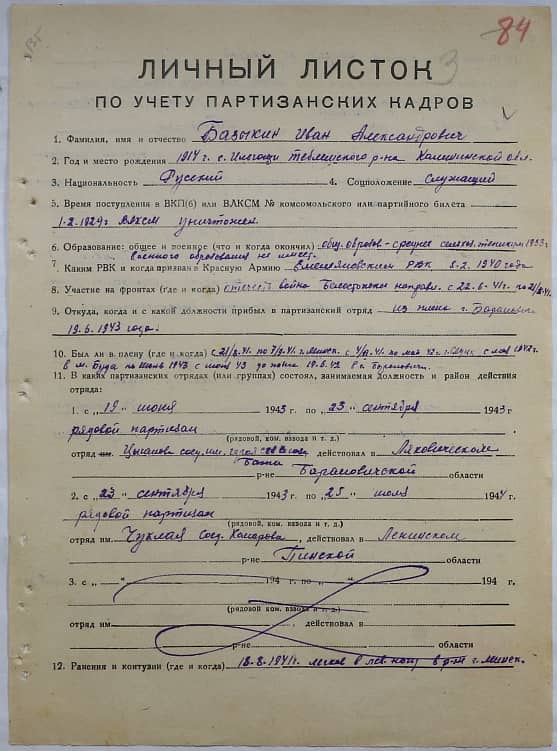 84
3
ЛИЧНЫЙ ЛИСТОК
ПО УЧЕТУ ПАРТИЗАНСКИХ КАДРОВ
1. Фамилия, имя и отчество Базыкин Иван Александрович
2. Год и место рождения 1914 г. с. Теблешского р-на Калининской обл.
3. Национальность Русский 4. Соцположение Служащий
5. Время поступления в ВКП(б) или ВЛКСМ № комсомольского или партийного билета
1.2.1929г ВЛКСМ уничтожен.
6. Образование: общее и военное (что и когда окончил) общ. образов - среднее техникум 1933 г.
военного образования не имеет.
7. Каким РВК и когда призван в Красную Армию РВК 5.2.1940 года
8. Участие на фронтах (где и когда) отечест война направл. с 22.6.41г. по
9. Откуда, когда и с какой должности прибыл в партизанский отряд из плена г.
19.6.1943 года.
10. Был ли в плену (где и когда) г. Минск. с по май 42 г. с мая 1942г.
в м. Буда по июнь 1943 с июня 43 до
11. В каких партизанских отрядах (или группах) состоял, занимаемая должность и район действия
отряда:
1. с „19“ июня 1943 г. по „23“ сентября 1943 г
рядовой партизан
(рядовой, ком. взвода и т. д.)
отряд им. Цыганов соед. им. героя действовал в Ляховичском
р-не Барановичской области
2. с „23“ сентября 1943 г. по „25“ июля 1944 г.
рядовой партизан
(рядовой ком. взвода и т. д.)
отряд им. Чуклая соед. Комарова, действовал в Ленинском
р-не Пинской области
3. с „ “ 194 г. по „ “ 194 г.
(рядовой ком. взвода и т. д.)
отряд им. , действовал в
р-не области
12. Ранения и контузии (где и когда) 18.8.1941г. легко в лев. ногу в р-не г. Минск.